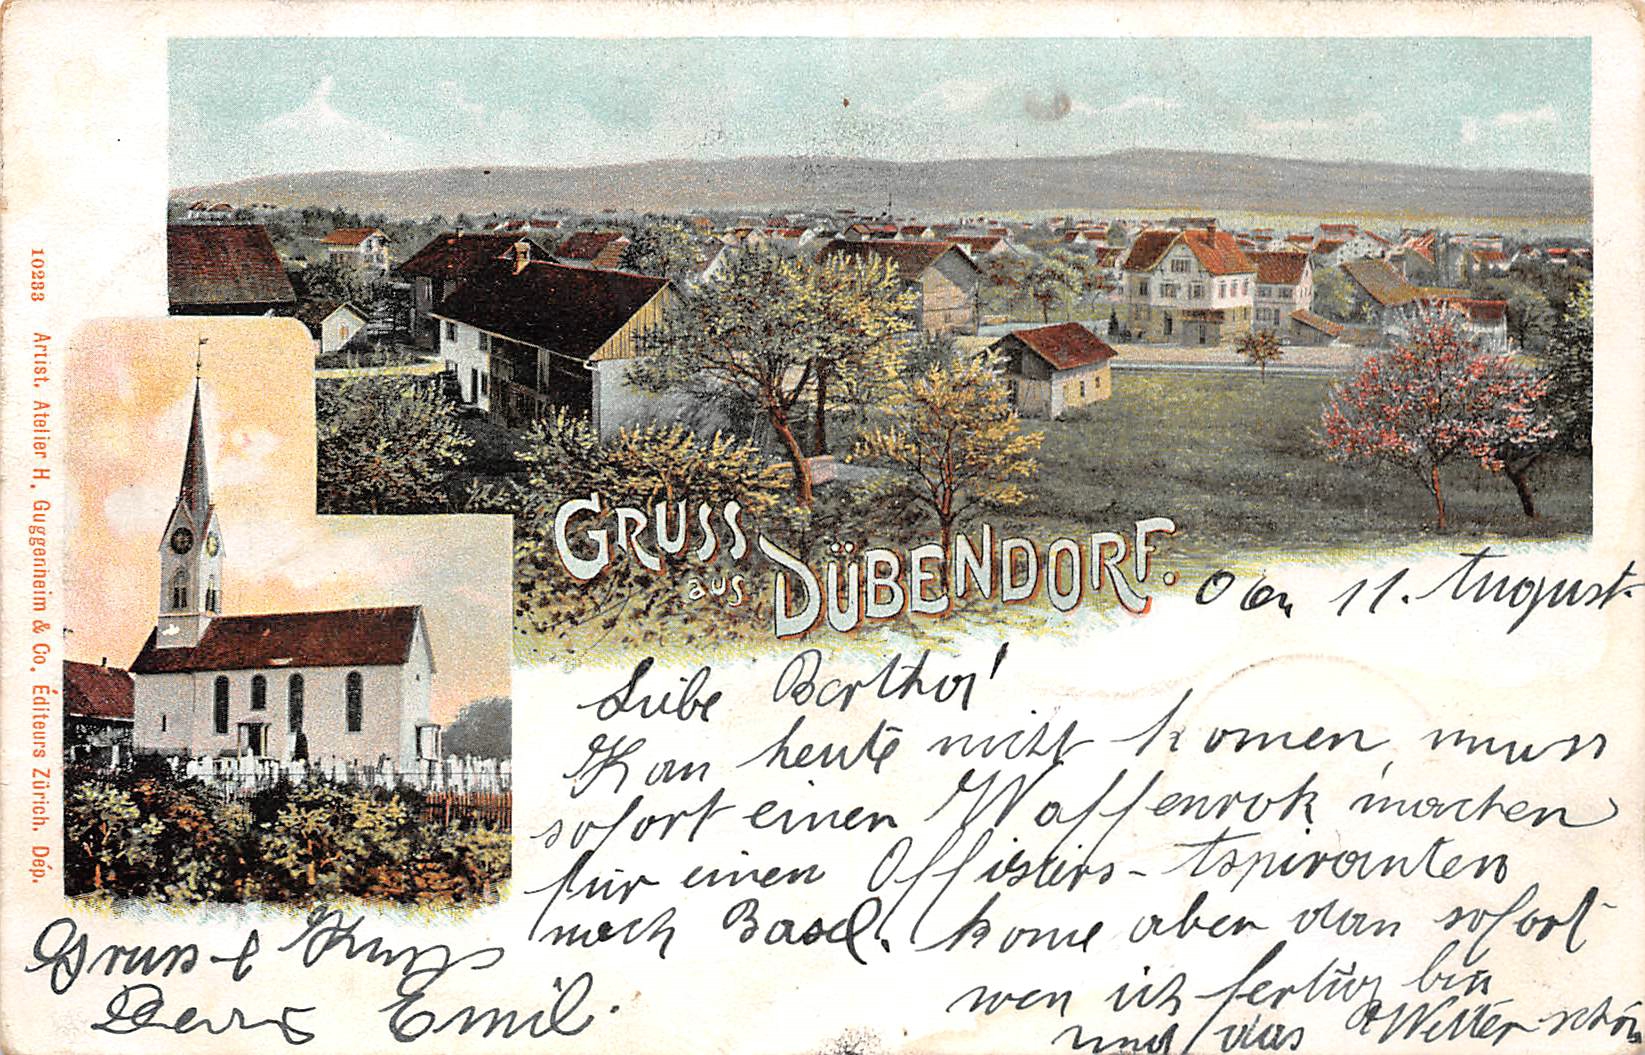 GRUSS
aus
DÜBENDORF.
10233 Artist. Atelier H. Guggenheim & Co. Éditeurs Zürich. Dép.
den 11. August.
Liebe Bertha!
Kan heute nicht komen, muss
sofort einen Waffenrok machen
für einen Offiziers-Aspiranten
nach Basel. kome aber dan sofort
wen ich fertig bin
und das Wetter schön
Gruss & Kuss
Dein Emil.